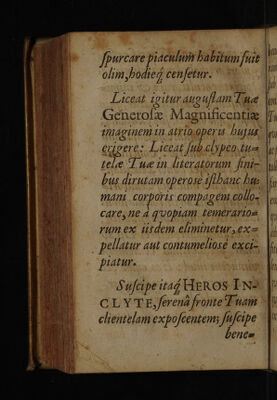 spurcare piaculum habitum fuit
olim, hodieq; censetur.
Liceat igitur augustam Tuæ
Generosæ Magnificentiæ
imaginem in atrio operis hujus
erigere: Liceat sub clypeo tu-
telæ Tuæ in literatorum fini-
bus dirutam operose isthanc hu-
mani corporis compagem collo-
care, ne à qvopiam temerario-
rum ex iisdem eliminetur, ex-
pellatur aut contumeliosè exci-
piatur.
Suscipe itaq́; HEROS IN-
CLYTE, serenâ fronte Tuam
clientelam exposcentem; suscipe
bene-